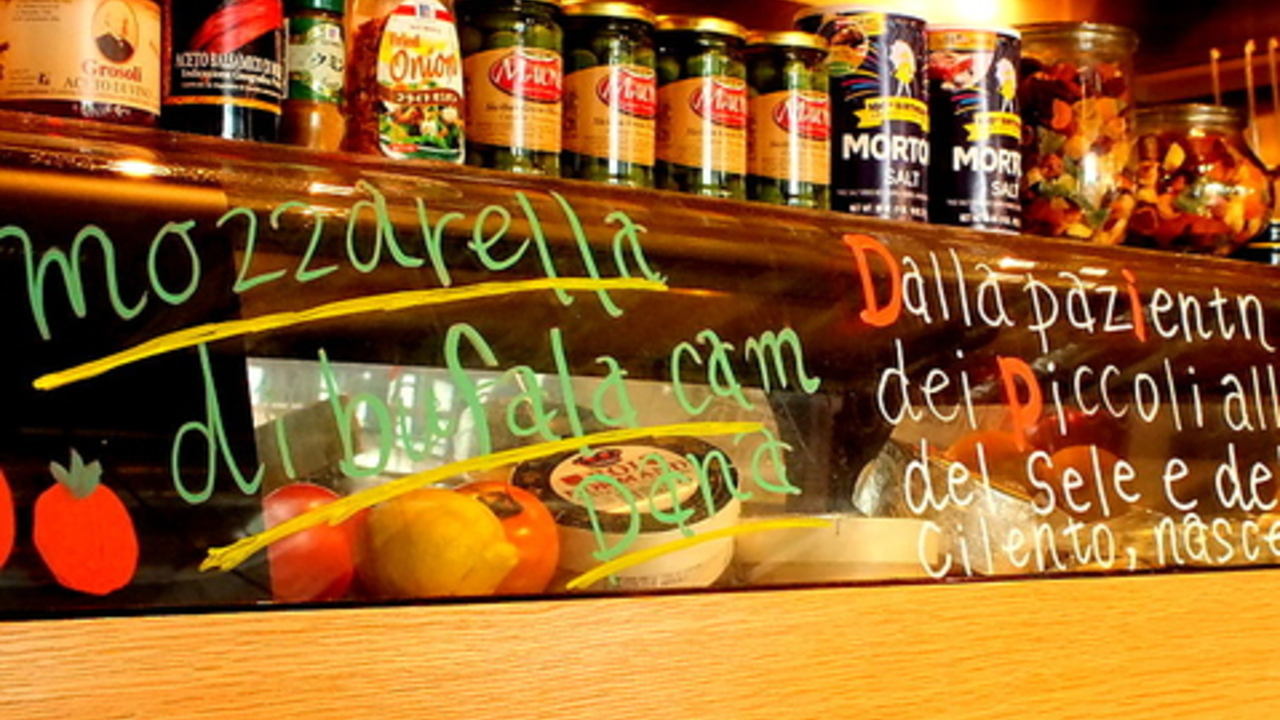 Grosoli
ACETO DI VINO
ACETO BALSAMICO DI MO
Fried
Onion
MORTO
SALT
MORT
SALT
mozzarella
di bufala cam
pana
Dalla pazientn
dei piccoli all
del Sele e de
Cilento, nasce